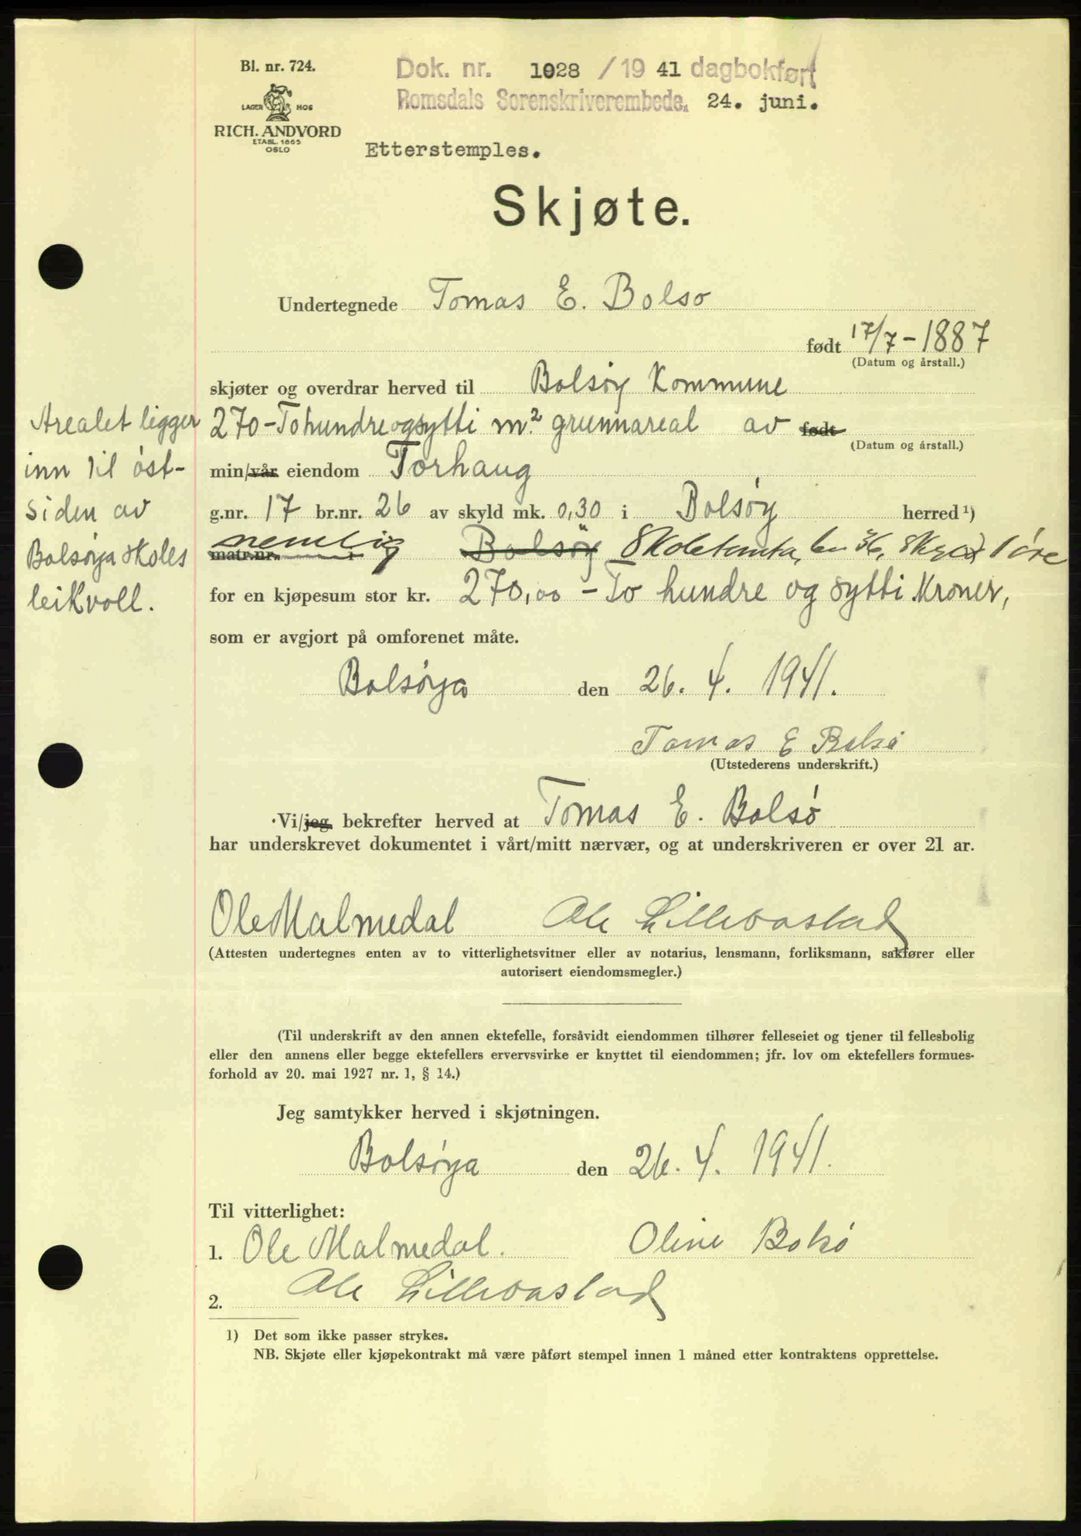 Bl. nr. 724.
LAGER HOS
RICH. ANDVORD
ETABL. 1865
OSLO
Dok. nr. 1028 / 19 41 dagbokført
Romsdals Sorenskriverembede. 24. juni.
Etterstemples.
Skjøte.
Undertegnede Tomas E. Bolsø
født 17/7-1887
(Datum og årstall.)
skjøter og overdrar herved til Bolsøy Kommune
270-Tohundreogsytti m² grunnareal av født
(Datum og årstall.)
min/vår eiendom Torhaug
g.nr. 17 br.nr. 26 av skyld mk. 0,30 i Bolsøy herred ¹)
matr.nr. i nemlig Bolsøy Skoletomta, bn 36, skyld 1 øre
for en kjøpesum stor kr. 270,00 - To hundre og sytti Kroner,
som er avgjort på omforenet måte.
Bolsøya den 26. 4. 1941.
Tomas E Bolsø
(Utstederens underskrift.)
Vi/jeg bekrefter herved at Tomas E. Bolsø
har underskrevet dokumentet i vårt/mitt nærvær, og at underskriveren er over 21 år.
Ole Malmedal Ole Lillevastad
(Attesten undertegnes enten av to vitterlighetsvitner eller av notarius, lensmann, forliksmann, sakfører eller
autorisert eiendomsmegler.)
(Til underskrift av den annen ektefelle, forsåvidt eiendommen tilhører felleseiet og tjener til fellesbolig
eller den annens eller begge ektefellers ervervsvirke er knyttet til eiendommen; jfr. lov om ektefellers formues-
forhold av 20. mai 1927 nr. 1, § 14.)
Jeg samtykker herved i skjøtningen.
Bolsøya den 26. 4. 1941.
Til vitterlighet:
1. Ole Malmedal. Oline Bolsø
2. Ole Lillevastad
1) Det som ikke passer strykes.
NB. Skjøte eller kjøpekontrakt må være påført stempel innen 1 måned etter kontraktens opprettelse.
Arealet ligger
inn til øst-
siden av
Bolsøya skoles
leikvoll.